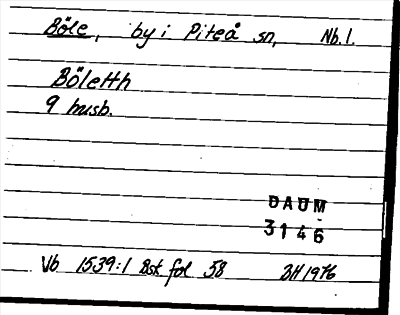 Böle, by i Piteå sn, Nb. l.
Böletth
9 husb.
DAUM
3146
Vb 1539:1 Bsk fol 58 BH 1976